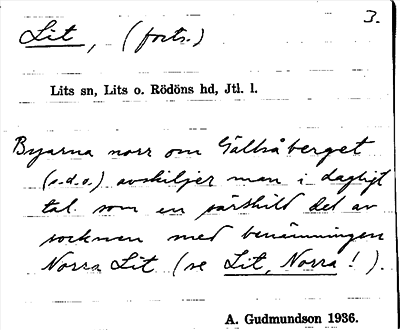 3.
Lit, (forts.)
Lits sn, Lits o. Rödöns hd, Jtl. l.
Byarna norr om Gällsåberget
(s.d.o.) avskiljer man i dagligt
tal som en särskild del av
socknen med benämningen
Norra Lit (se Lit, Norra!).
A. Gudmundson 1936.